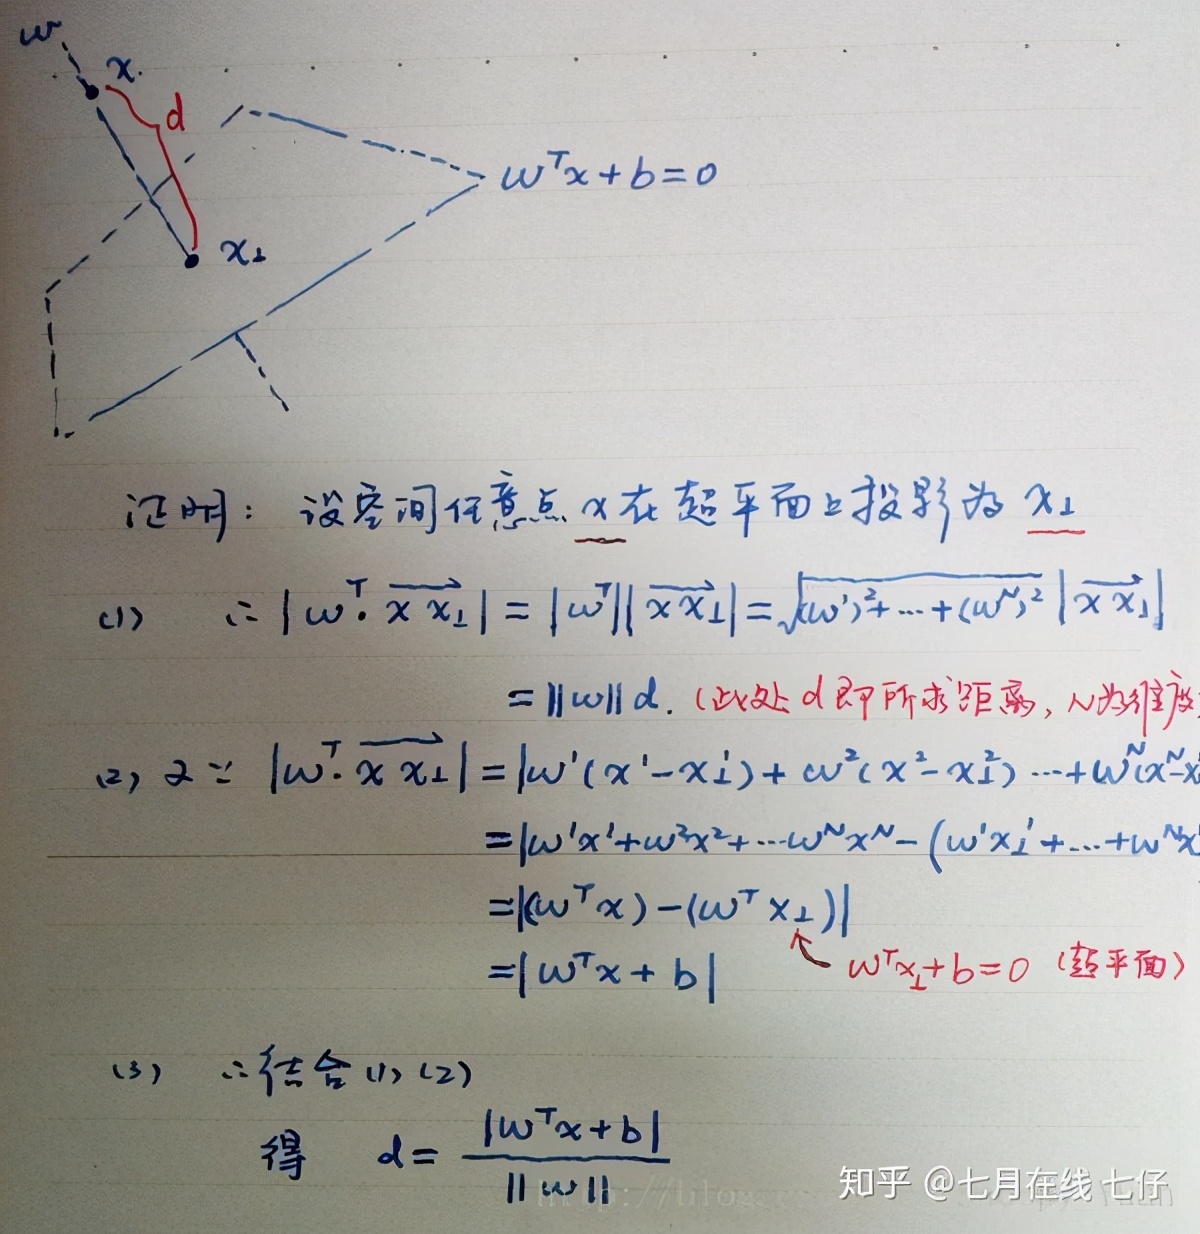 w
x
d
wᵀx+b=0
x⊥
证明: 设空间任意点 x 在超平面上投影为 x⊥
(1) ∴ |wᵀ·xx⊥| = |wᵀ||xx⊥| = √(w¹)²+…+(wᴺ)² |xx⊥|
= ‖w‖d. (此处d即所求距离, N为维度
(2) 又∵ |wᵀ·xx⊥| = |w¹(x¹-x⊥¹)+w²(x²-x⊥²)…+wᴺ(xᴺ-x
=|w¹x¹+w²x²+…wᴺxᴺ-(w¹x⊥¹+…+wᴺx
=|(wᵀx)-(wᵀx⊥)|
=|wᵀx+b| wᵀx⊥+b=0 (超平面)
(3) ∴结合(1)(2)
得 d= |wᵀx+b| / ‖w‖
知乎 @七月在线 七仔